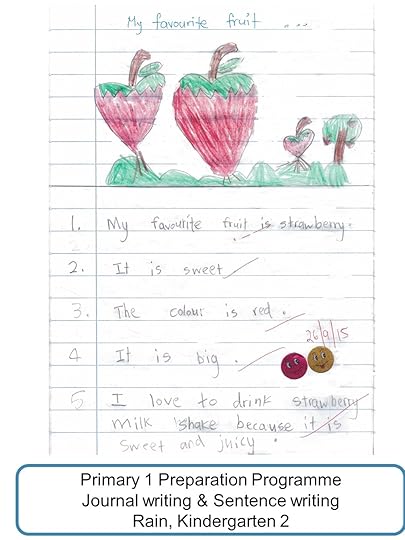 My favourite fruit ...
1. My favourite fruit is strawberry.
2. It is sweet
3. The colour is red.
26/9/15
4 It is big.
5 I love to drink strawberry
milk shake because it is
sweet and juicy.
Primary 1 Preparation Programme
Journal writing & Sentence writing
Rain, Kindergarten 2